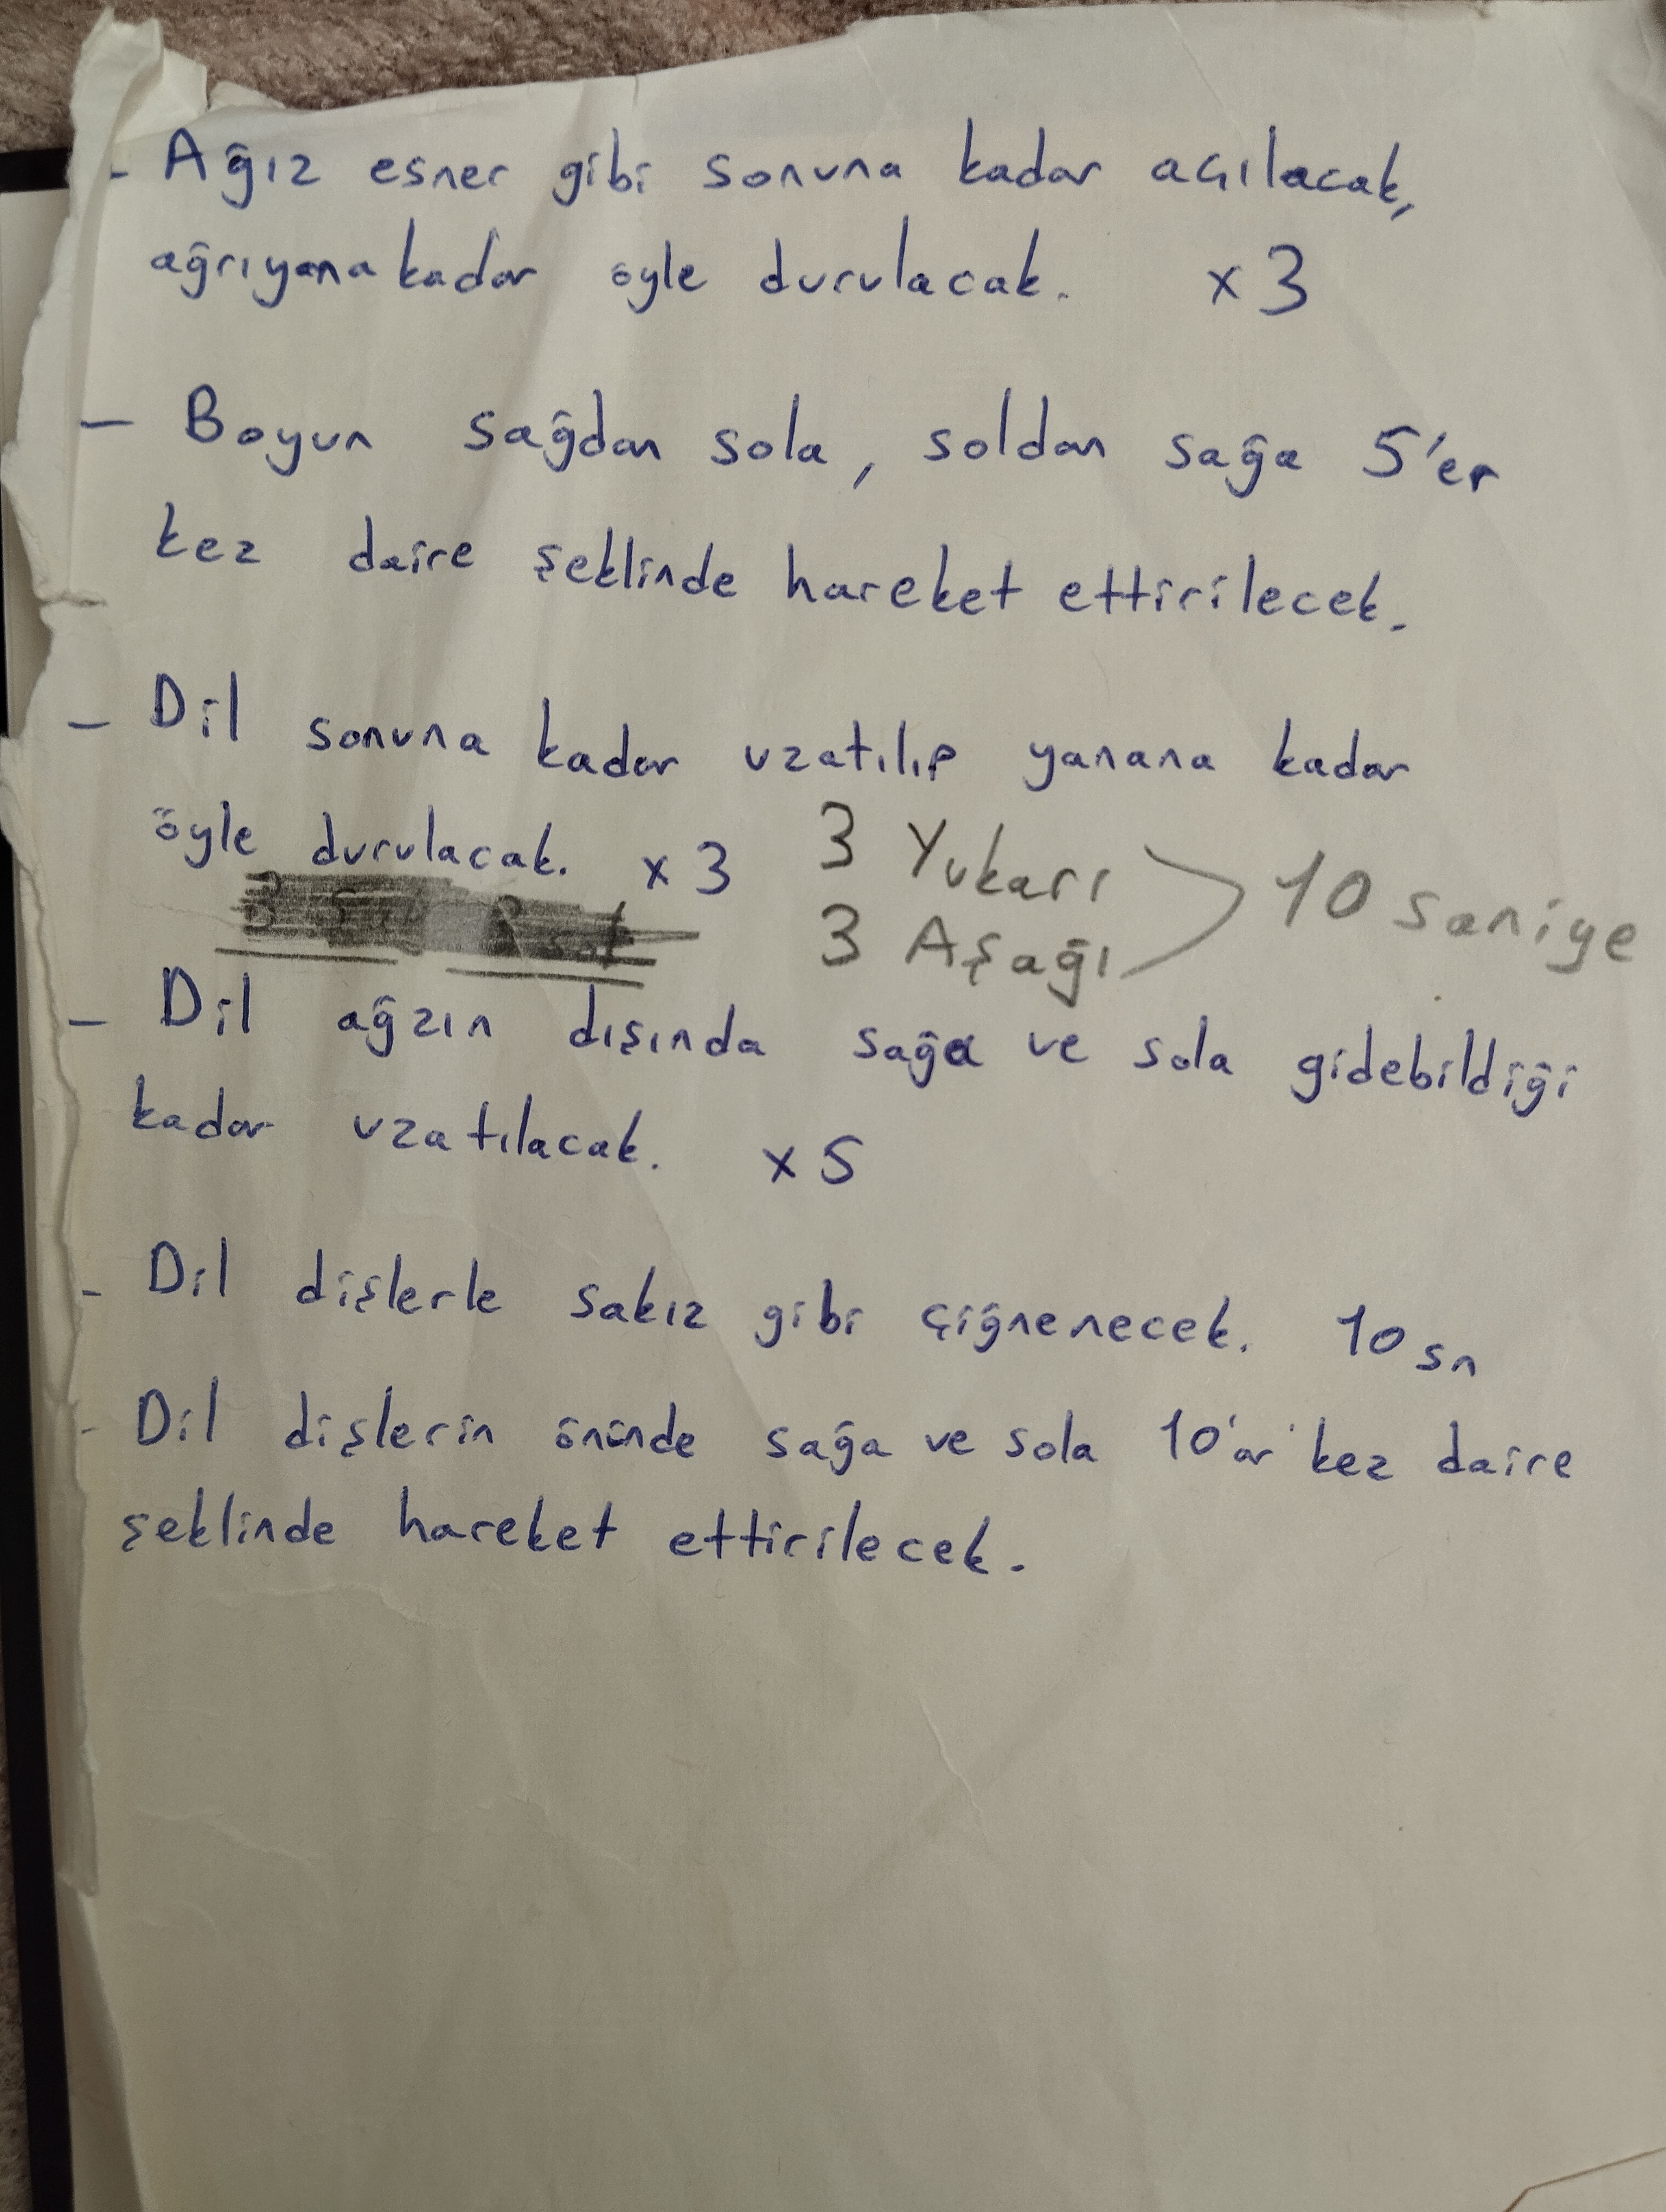 - Ağız esner gibi sonuna kadar açılacak,
ağrıyana kadar öyle durulacak. x 3
- Boyun sağdan sola, soldan sağa 5'er
kez daire şeklinde hareket ettirilecek.
- Dil sonuna kadar uzatılıp yanana kadar
öyle durulacak. x 3 3 Yukarı
3 Aşağı 10 saniye
- Dil ağzın dışında sağa ve sola gidebildiği
kadar uzatılacak. x 5
- Dil dişlerle sakız gibi çiğnenecek. 10 sn
- Dil dişlerin önünde sağa ve sola 10'ar kez daire
şeklinde hareket ettirilecek.